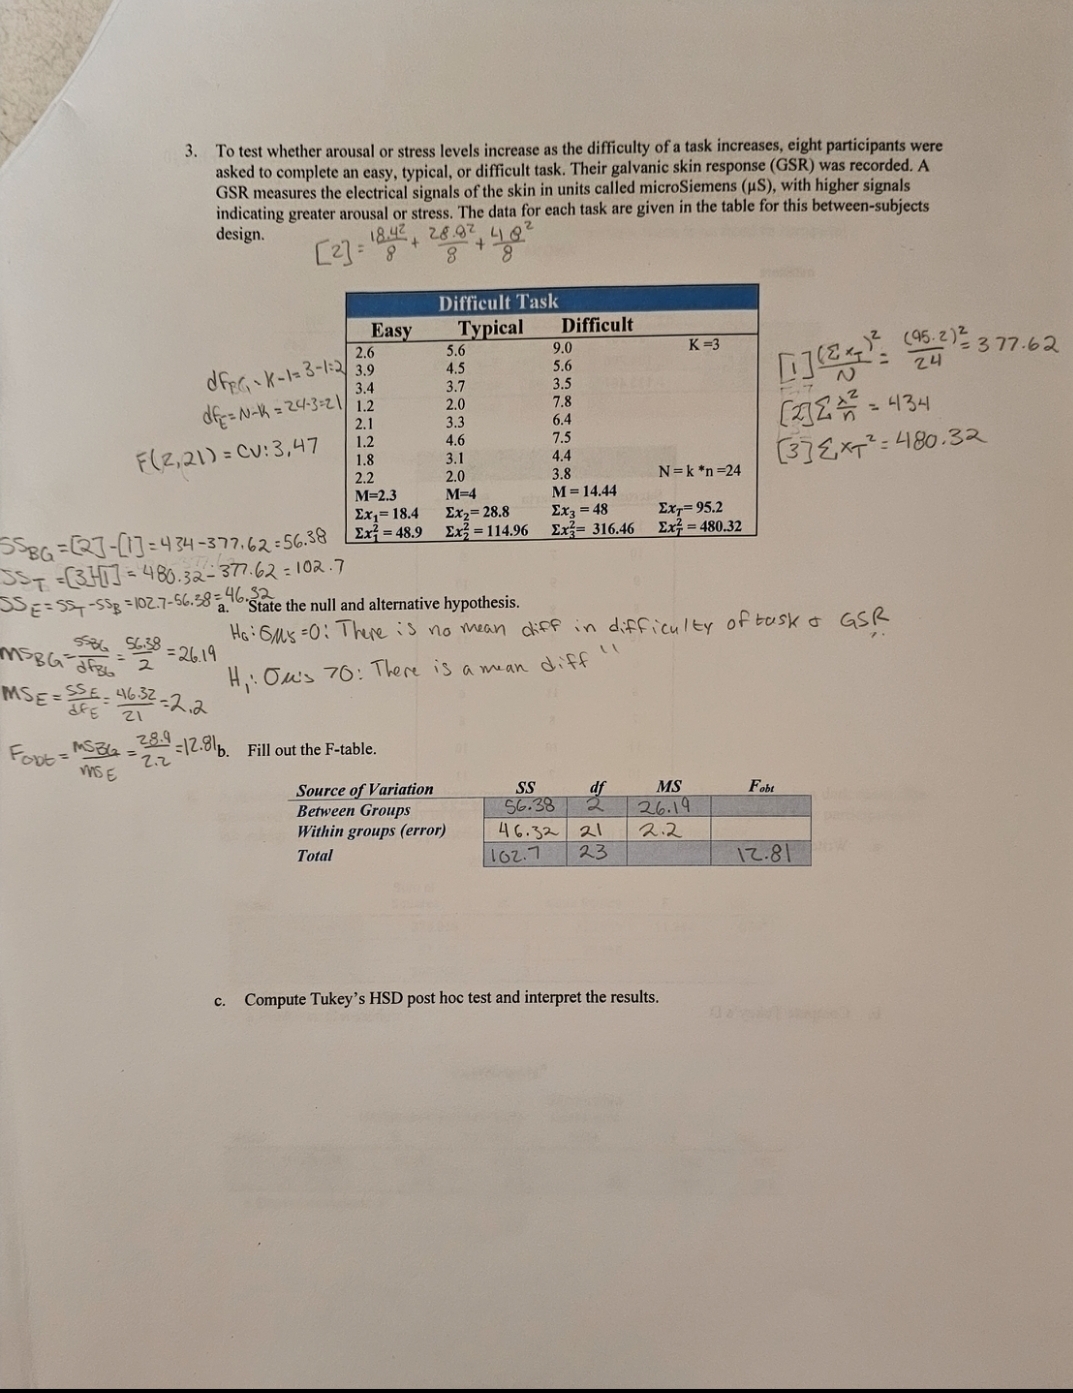 3. To test whether arousal or stress levels increase as the difficulty of a task increases, eight participants were
asked to complete an easy, typical, or difficult task. Their galvanic skin response (GSR) was recorded. A
GSR measures the electrical signals of the skin in units called microSiemens (µS), with higher signals
indicating greater arousal or stress. The data for each task are given in the table for this between-subjects
design.
[2] = 18.4²/8 + 28.8²/8 + 48²/8
Difficult Task
Easy Typical Difficult
2.6 5.6 9.0 K =3
3.9 4.5 5.6
3.4 3.7 3.5
1.2 2.0 7.8
2.1 3.3 6.4
1.2 4.6 7.5
1.8 3.1 4.4
2.2 2.0 3.8 N = k *n =24
M=2.3 M=4 M = 14.44
Σx₁= 18.4 Σx₂= 28.8 Σx₃ = 48 Σx_T= 95.2
Σx₁² = 48.9 Σx₂² = 114.96 Σx₃²= 316.46 Σx_T² = 480.32
df_BG = K-1= 3-1=2
df_E = N-K = 24-3=21
F(2,21) = CV: 3,47
[1] (Σx_T)²/N = (95.2)²/24 = 377.62
[2] Σ x²/n = 434
[3] Σx_T² = 480.32
SS_BG = [2]-[1] = 434-377.62 = 56.38
SS_T = [3]-[1] = 480.32-377.62 = 102.7
SS_E = SS_T-SS_B = 102.7-56.38 = 46.32
a. State the null and alternative hypothesis.
H₀: σμs =0: There is no mean diff in difficulty of task & GSR
H₁: σμ's >0: There is a mean diff "
MS_BG = SS_BG/df_BG = 56.38/2 = 26.19
MS_E = SS_E/df_E = 46.32/21 = 2.2
F_obt = MS_BG/MS_E = 28.9/2.2 = 12.81
b. Fill out the F-table.
Source of Variation SS df MS F_obt
Between Groups 56.38 2 26.19
Within groups (error) 46.32 21 2.2
Total 102.7 23 12.81
c. Compute Tukey's HSD post hoc test and interpret the results.